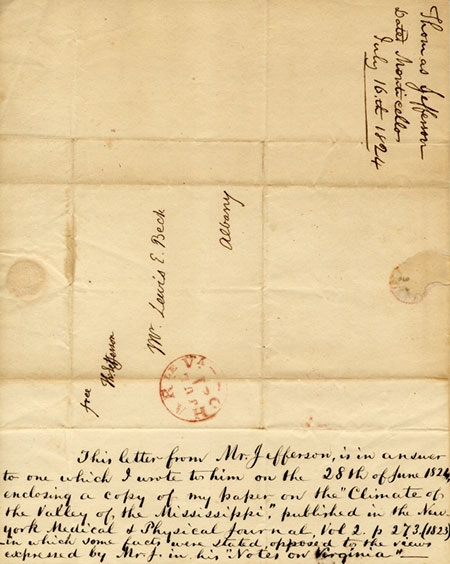 Thomas Jefferson
Dated Monticello
July 16.th 1824
Albany
Mr. Lewis E. Beck
free
Th: Jefferson
CHARLE VA
JUL
21
This letter from Mr. Jefferson, is in answer
to one which I wrote to him on the 28th of June 1824,
enclosing a copy of my paper on the "Climate of
the Valley of the Mississippi", published in the New-
york Medical & Physical Journal Vol 2. p 273. (1823)
in which some facts were stated opposed to the views
expressed by Mr. J. in his "Notes on Virginia"